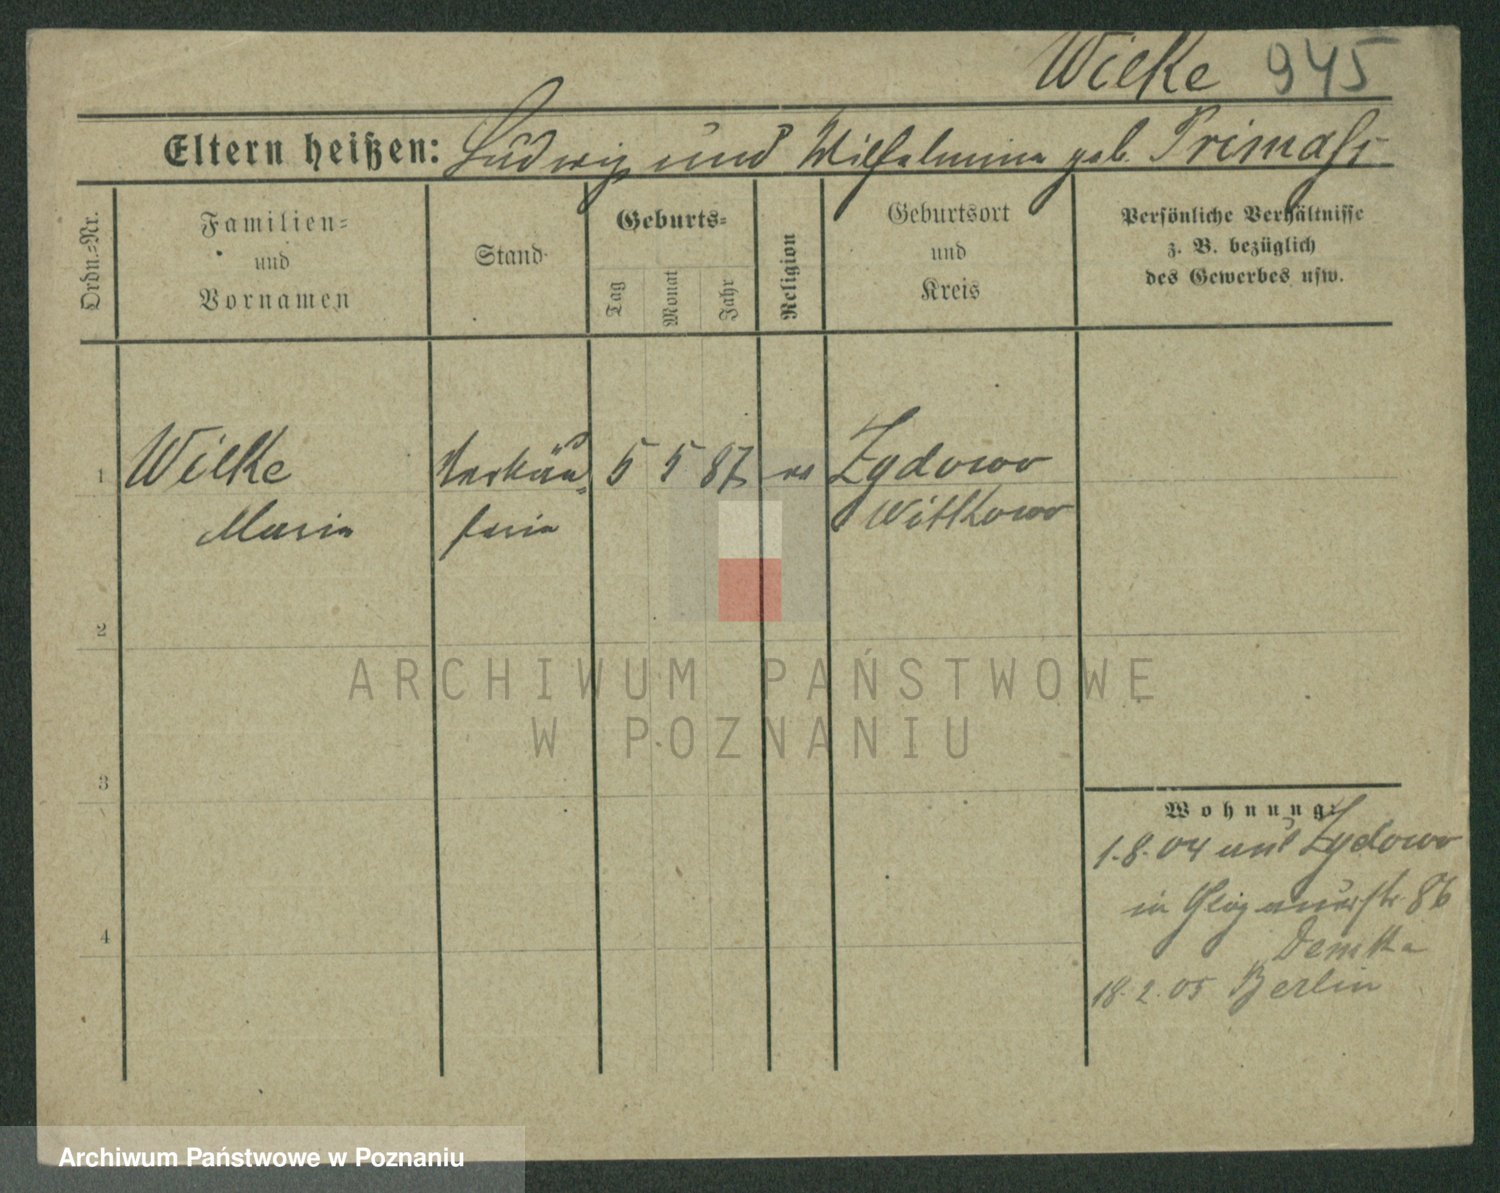 Wilke 945
Eltern heißen: Ludwig und Wilhelmine geb.
Ordn.-Nr.
Familien-
und
Vornamen
Stand
Geburts-
Tag
Monat
Jahr
Religion
Geburtsort
und
Kreis
Persönliche Verhältnisse
z. B. bezüglich
des Gewerbes usw.
1 Wilke Verkäu- 5 5 87 Zydowo
Maria ferin Wittkowo
2
3
4
Wohnung:
1.8.04 aus Zydowo
in Glogauerstr. 86
18.2.05 Berlin
ARCHIWUM PAŃSTWOWE
W POZNANIU
Archiwum Państwowe w Poznaniu